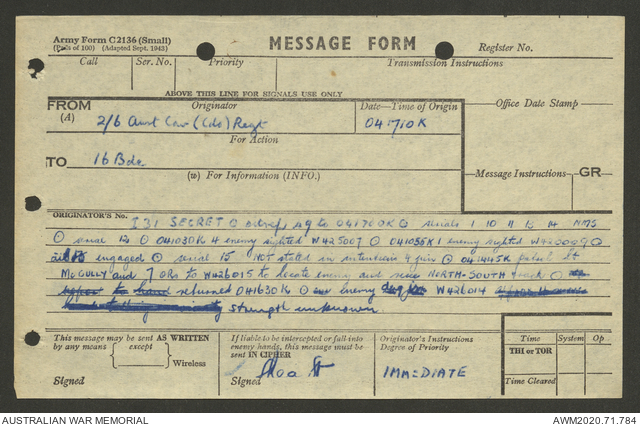 Army Form C2136 (Small)
(Pads of 100) (Adapted Sept. 1943)
MESSAGE FORM
Register No.
Call Ser. No. Priority Transmission Instructions
ABOVE THIS LINE FOR SIGNALS USE ONLY
FROM Originator Date—Time of Origin Office Date Stamp
(A) 2/6 Aust Cav (Cdo) Regt 041710K
For Action
TO 16 Bde.
(W) For Information (INFO.) Message Instructions GR
ORIGINATOR'S No. I31 SECRET to 041700K serials 1 10 11 12 14
serial 041030K 4 enemy sighted W425007 041035K 1 enemy sighted
engaged serial 15 NOT stated in 041445K patrol Lt
McGULLY and 7 ORs to W426015 to locate enemy and NORTH-SOUTH track
returned 041630K enemy W426014
strength unknown.
This message may be sent AS WRITTEN
by any means except
Wireless
Signed
If liable to be intercepted or fall into
enemy hands, this message must be
sent IN CIPHER
Signed
Originator's Instructions
Degree of Priority
IMMEDIATE
Time System Op
THI or TOR
Time Cleared
AUSTRALIAN WAR MEMORIAL AWM2020.71.784